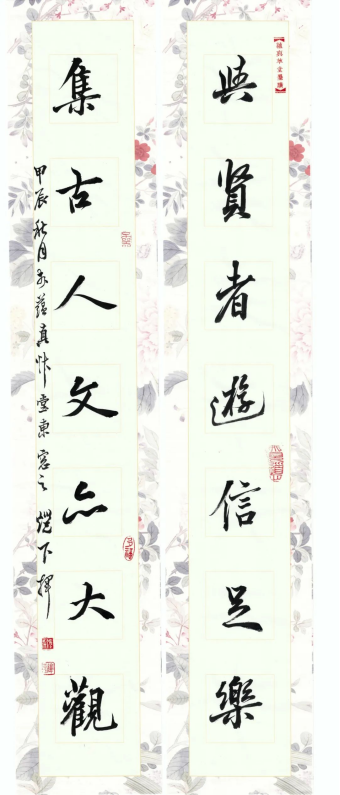 與賢者遊信足樂
集古人文亦大觀
甲辰秋月於蘊真艸堂東窓之燈下揮